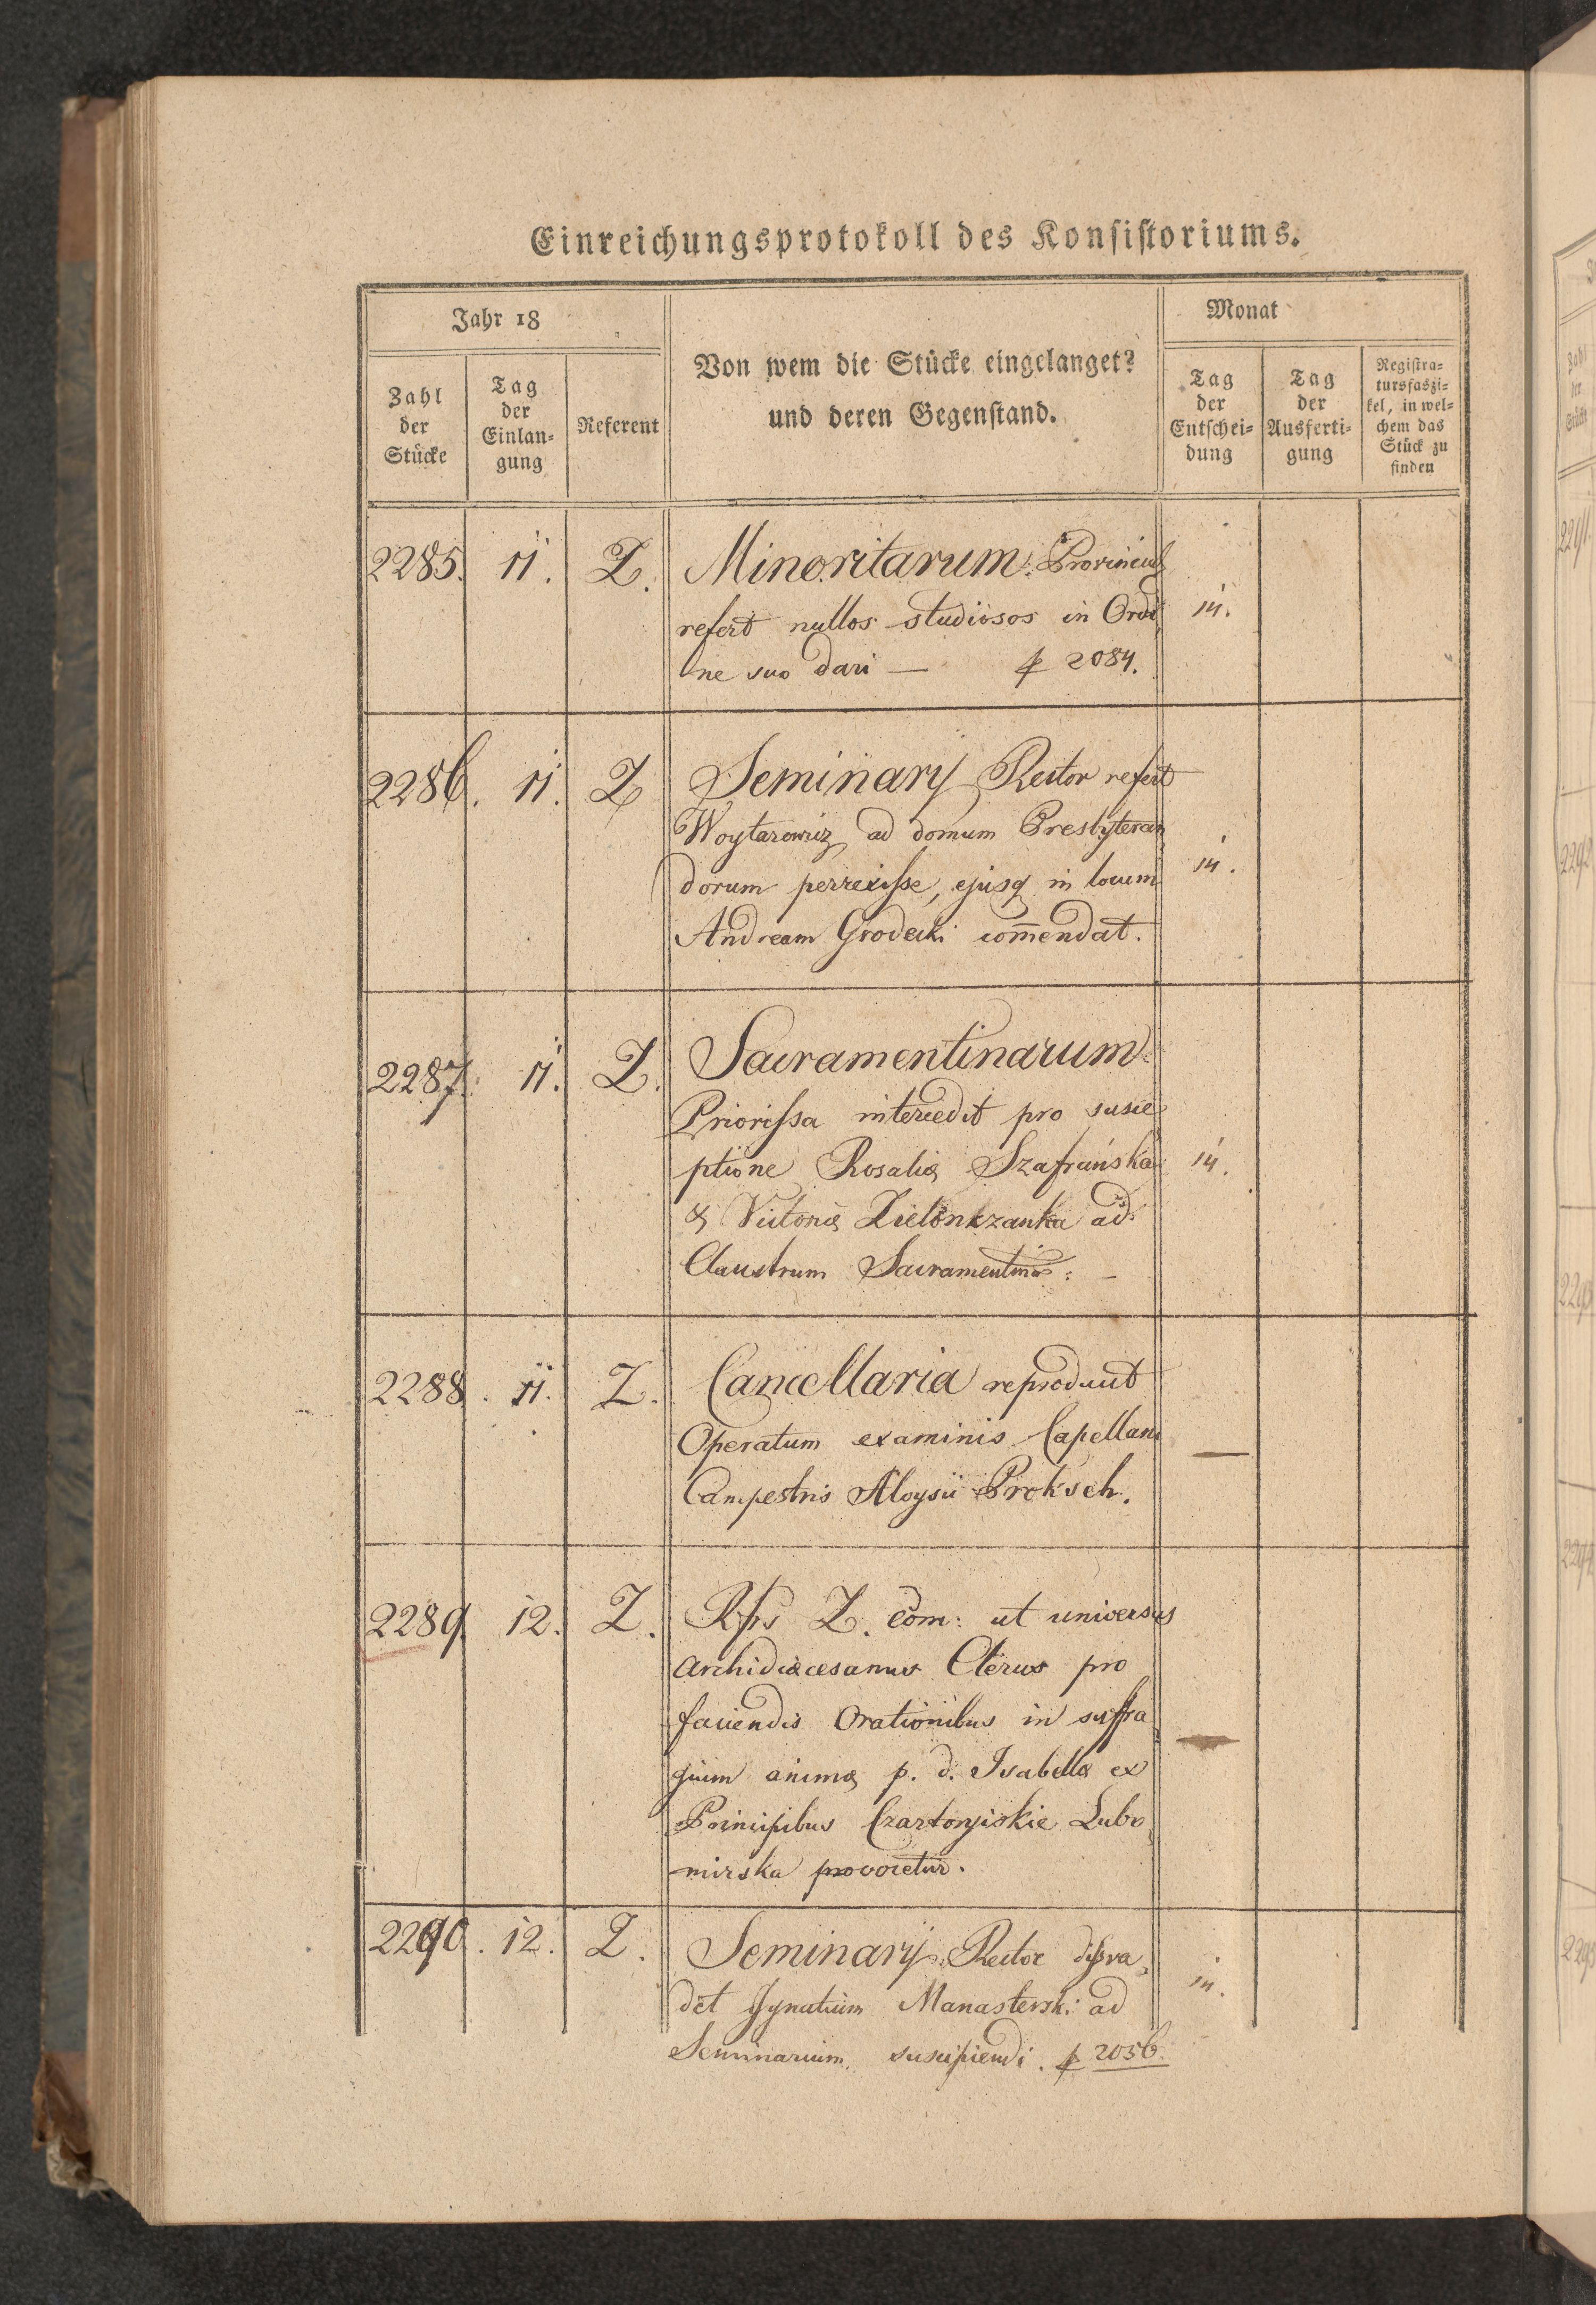 Einreichungsprotokoll des Konsistoriums.
Jahr 18
Monat
Zahl der Stücke
Tag der Einlan-gung
Referent
Von wem die Stücke eingelanget?
und deren Gegenstand.
Tag der Entschei-dung
Tag der Ausferti-gung
Registra-tursfaszi-kel, in wel-chem das Stück zu finden
2285. 11. Z. Minoritarum Provincial
refert nullos studiosos in Ordi 14.
ne suo dari — 2084.
2286. 11. Z Seminarij Rector refert
Woytarowicz ad domum Presbyteran
dorum perrexisse, ejusq in locum 14.
Andream Grodecki com̄endat.
2287. 11. Z. Sacramentinarum
Priorissa intercedit pro susce
ptione Rosaliæ Szafrańska 14.
& Victoriæ Zielonkzanka ad
Claustrum Sacramentin:
2288. 11. Z. Cancellaria reproducit
Operatum examinis Capellani —
Campestris Aloysii Proksch.
2289. 12. Z. Rfrs Z. com: ut universus
Archidiæcesanus Clerus pro
faciendis Orationibus in suffra —
gium animæ p. d. Isabellæ ex
Principibus Czartoryiskie Lubo
mirska provocetur.
2290. 12. Z. Seminarij Rector dissva
det Ignatium Manasterski ad 14.
Seminarium suscipiendi. 2056.